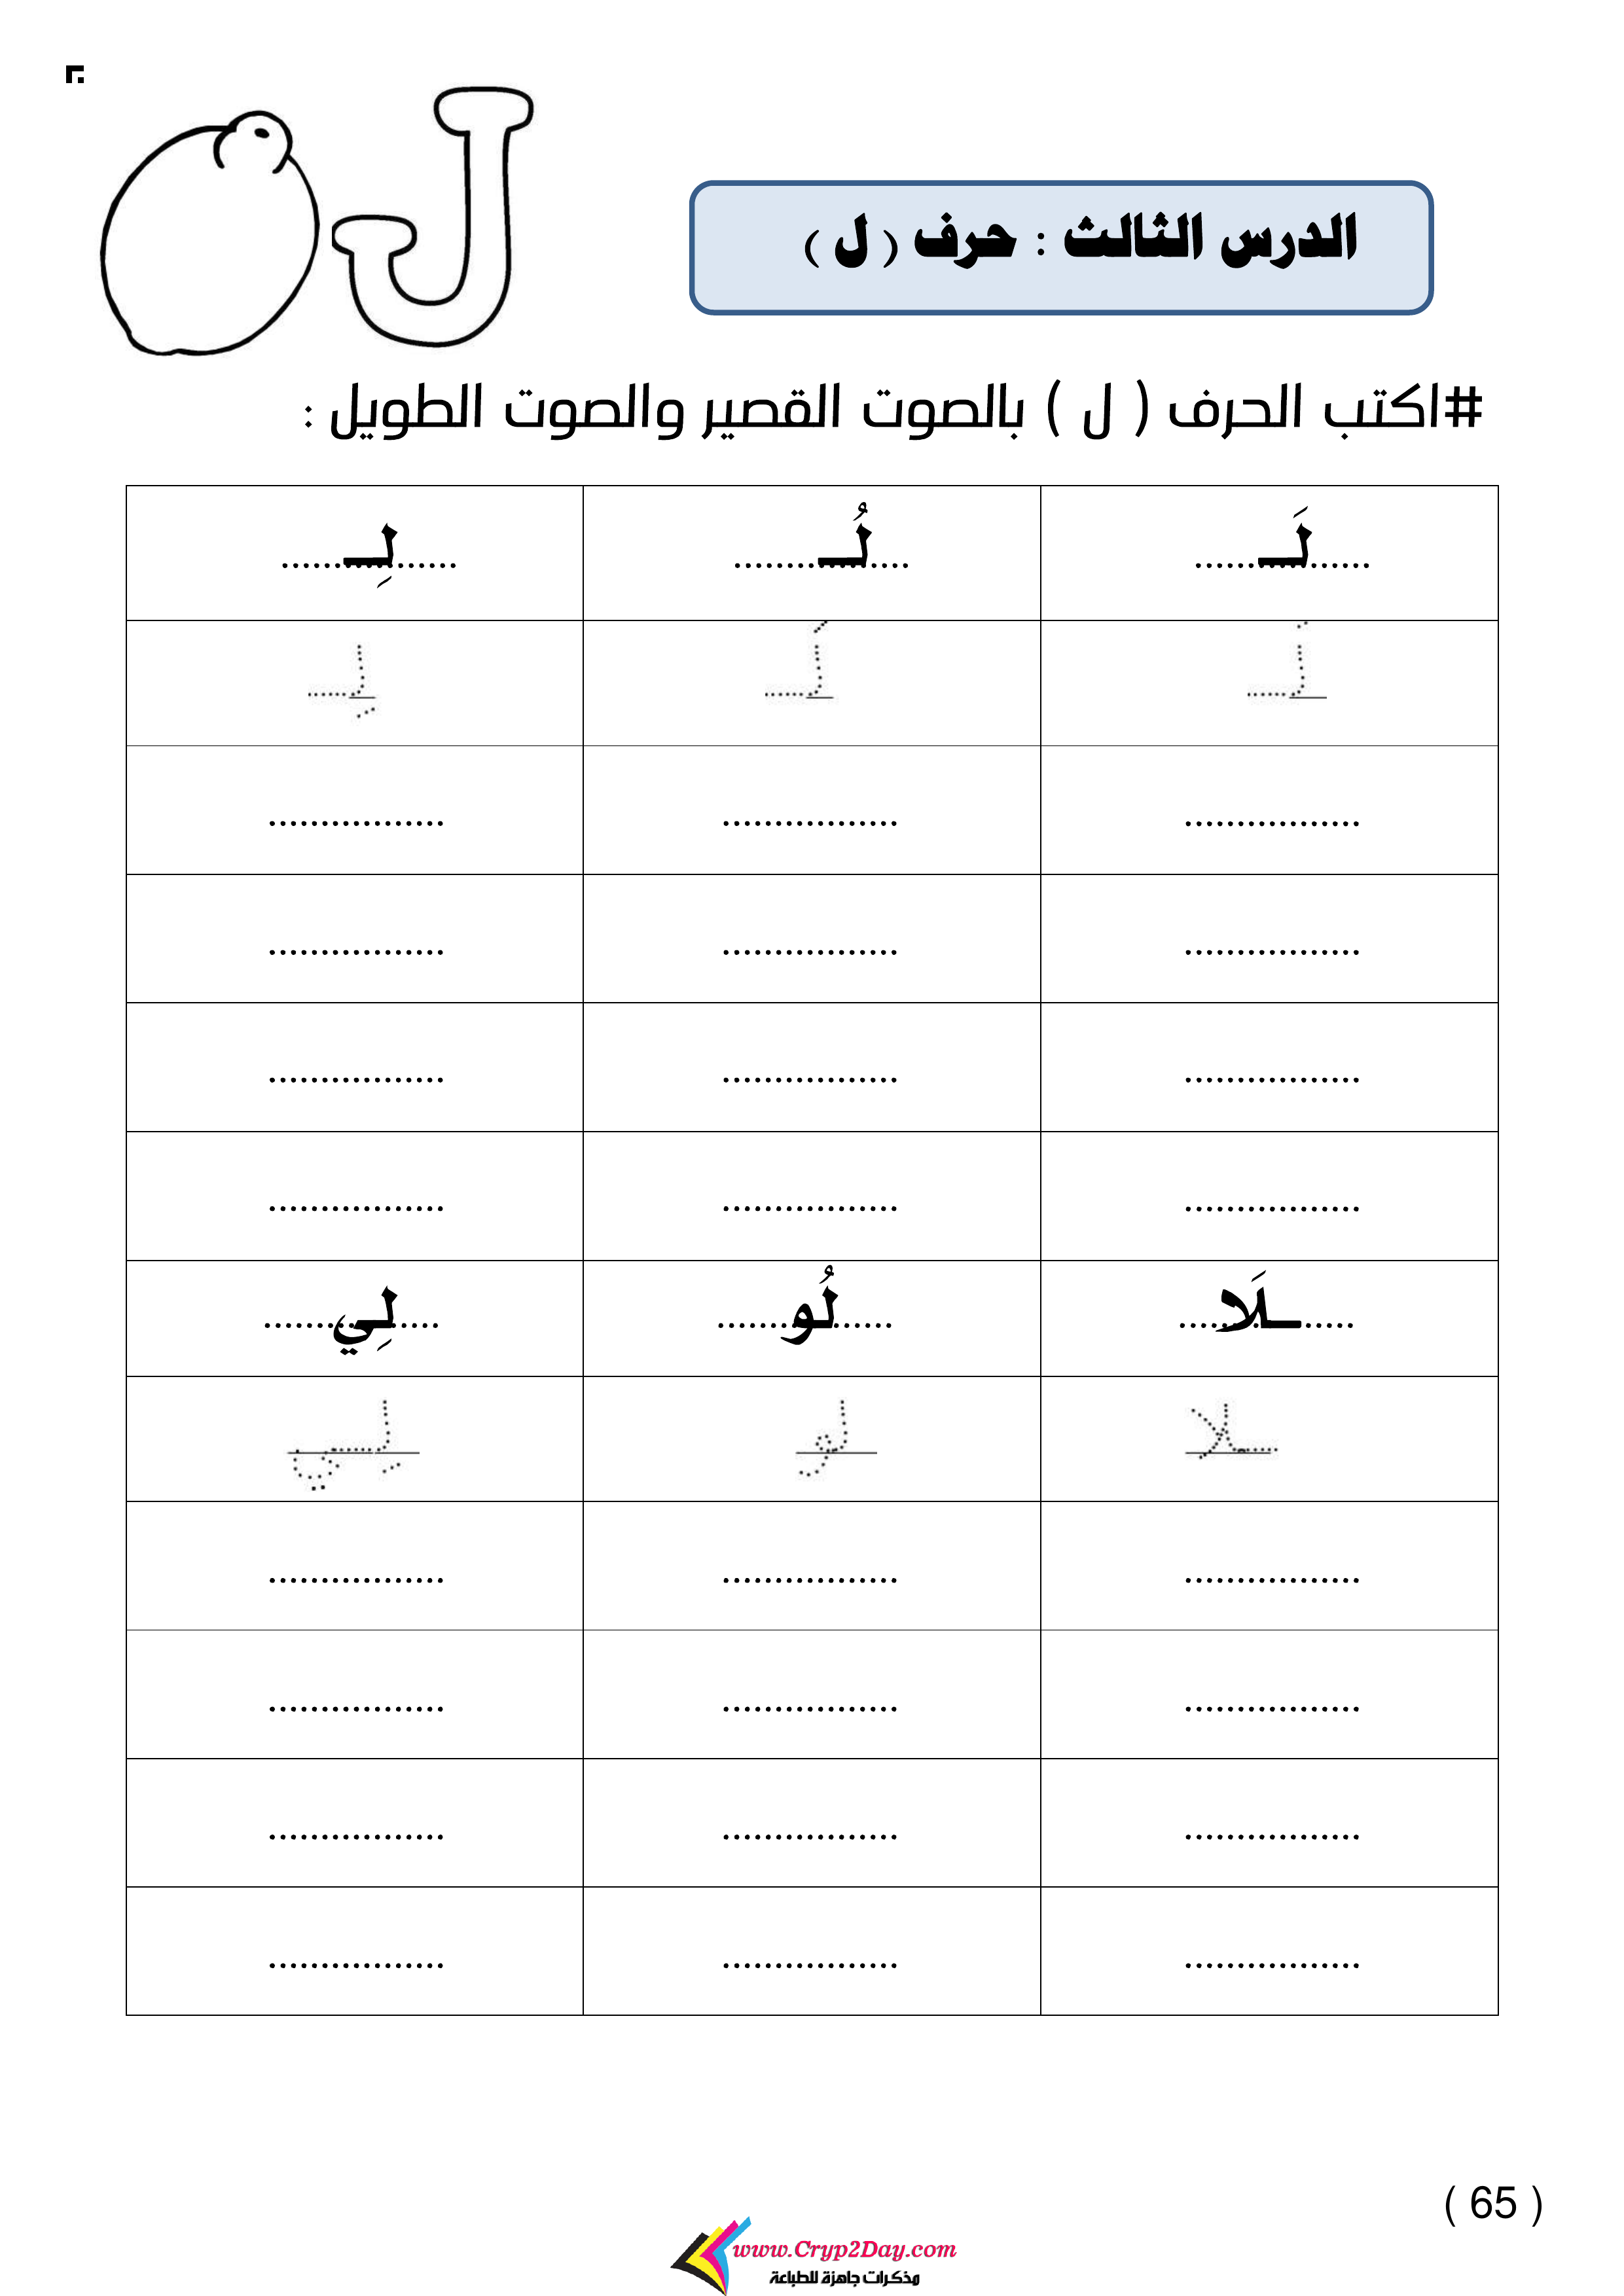 الدرس الثالث : حرف ( ل )
#اكتب الحرف ( ل ) بالصوت القصير والصوت الطويل :
لَـ لُـ لِـ
لـ لـ لـِ
................ ................ .................
................ ................ .................
................ ................ .................
................ ................ .................
ـلَا لُو لِي
ـلا لو لِي
................ ................ .................
................ ................ .................
................ ................ .................
................ ................ .................
( 65 )
www.Cryp2Day.com
مذكرات جاهزة للطباعة